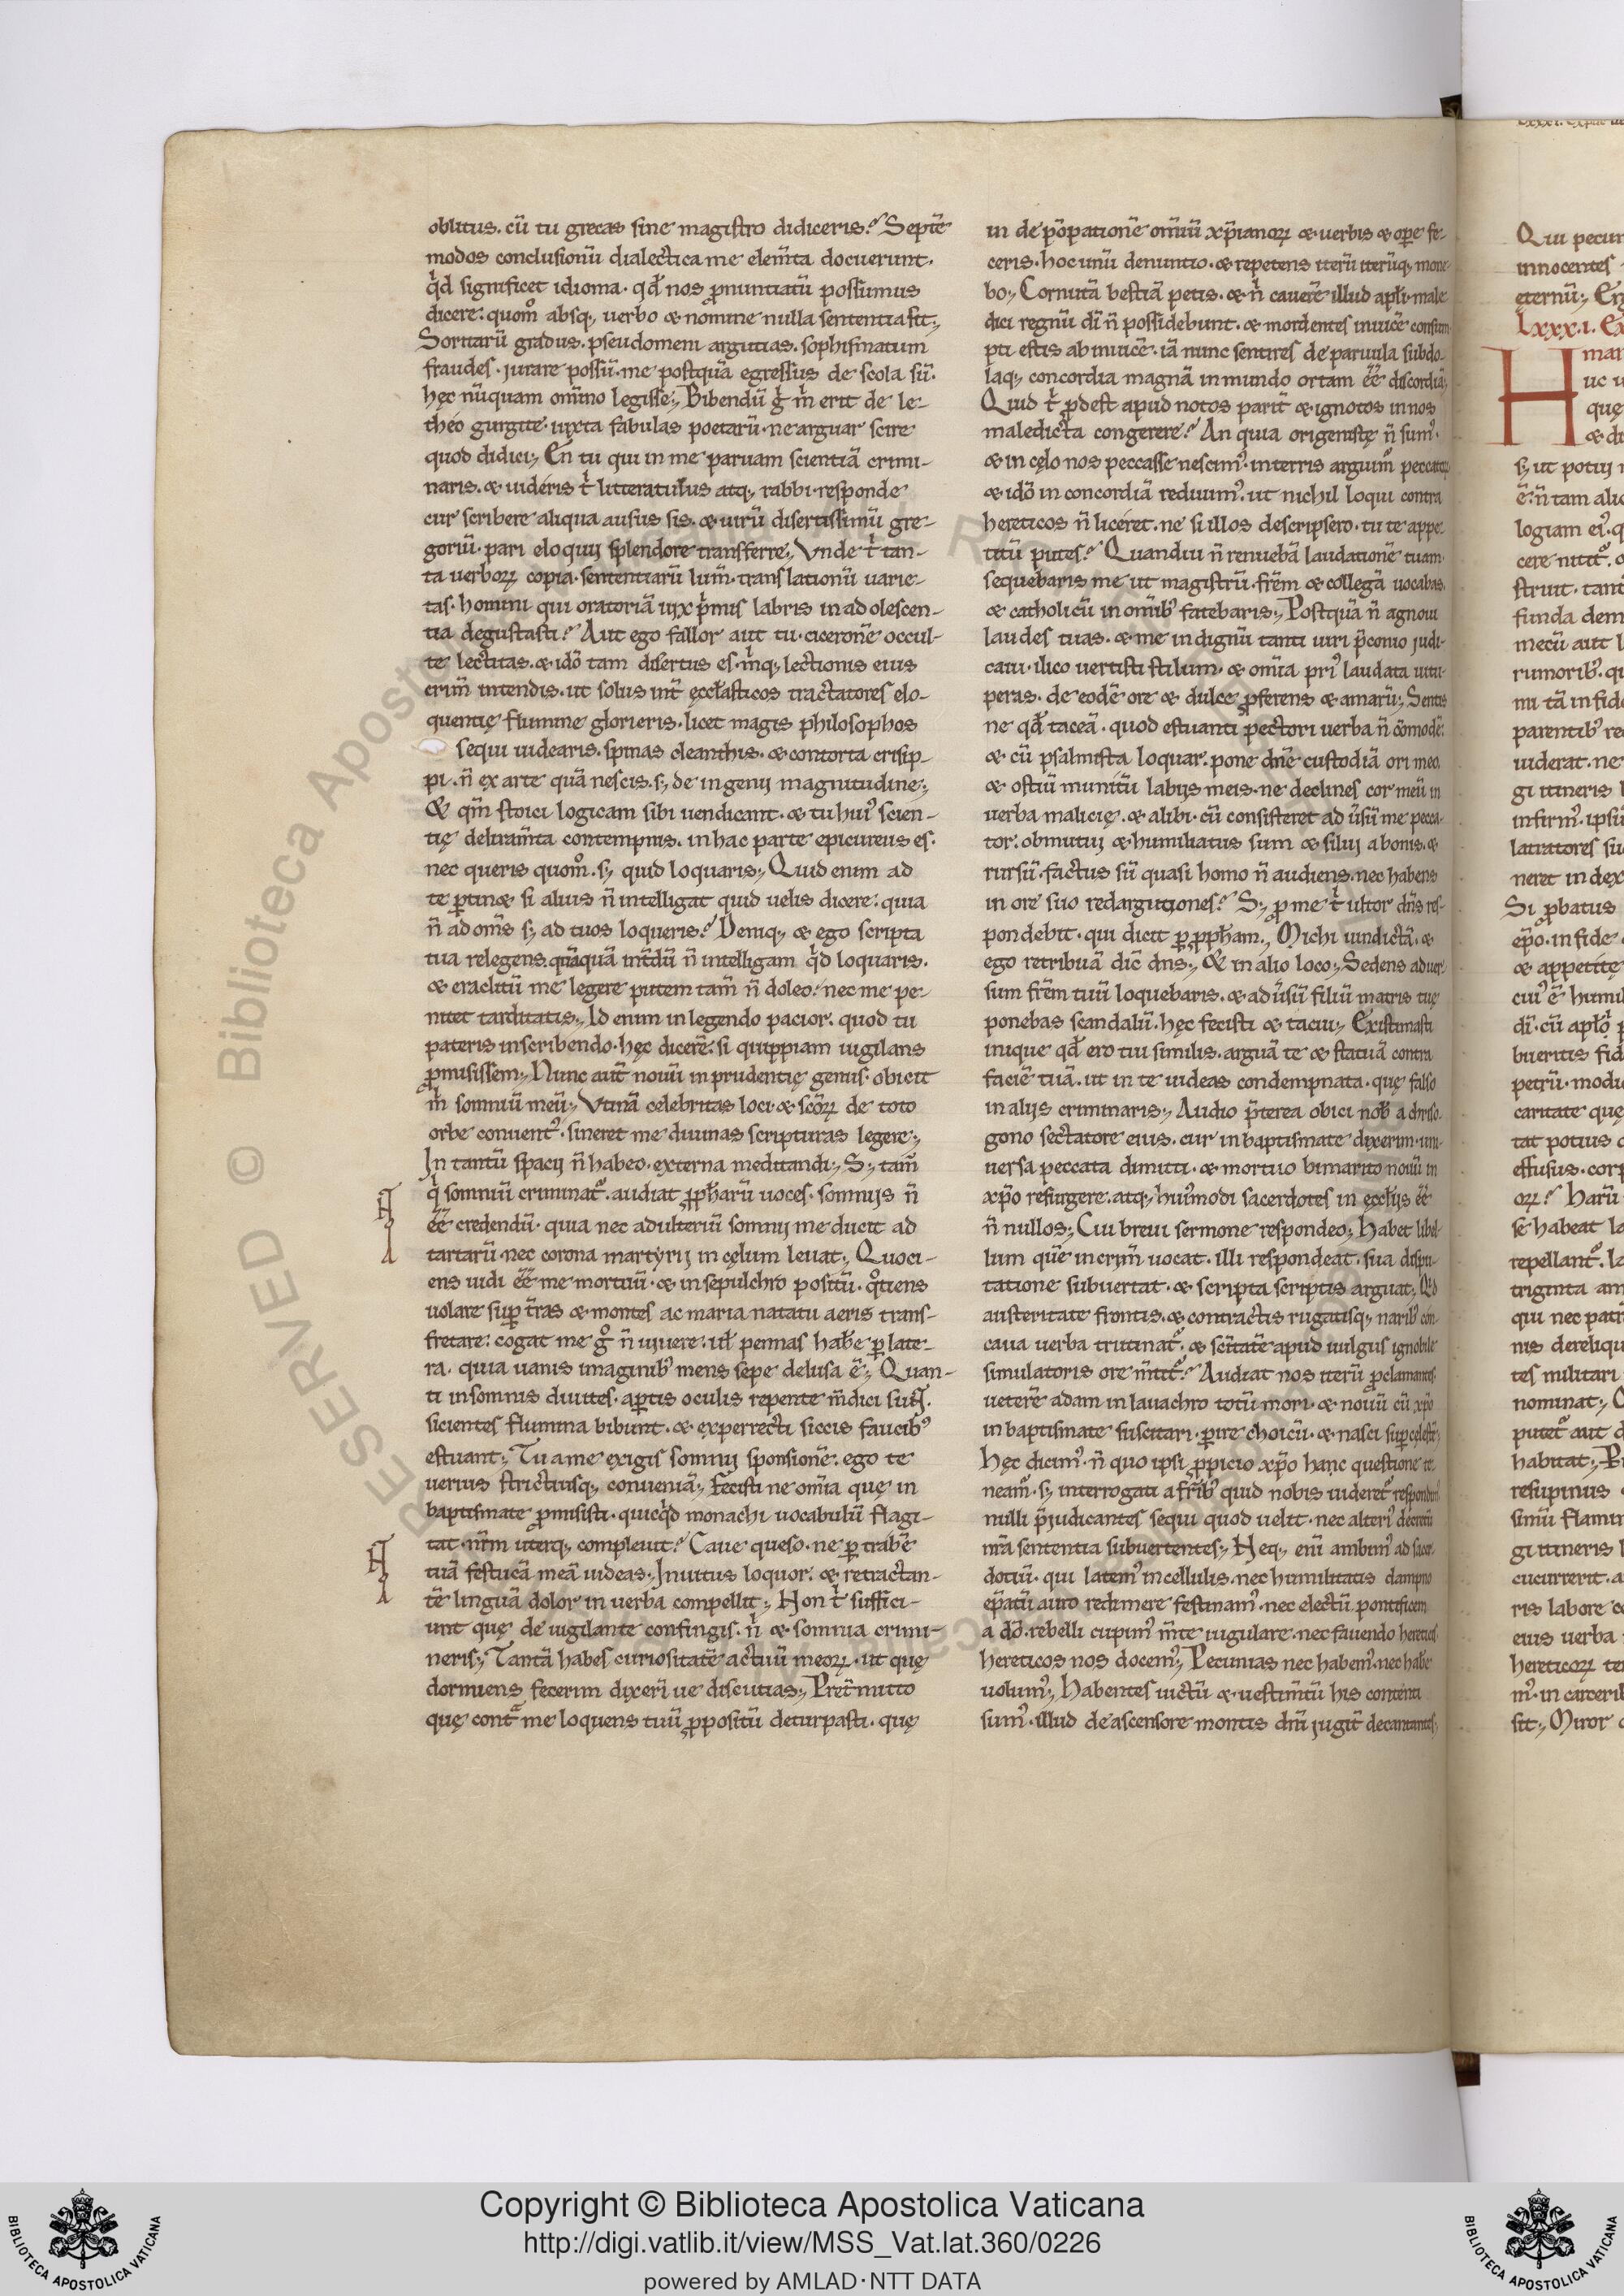 oblitus. cũ tu grecas sine magistro didiceris? Septẽ
modos conclusionũ dialectica me elem̃ta docuerunt.
qͥd significet idioma. qđ nos ꝓnuntiatũ possumus
dicere. quom̊ absq; uerbo & nomine nulla sententia sit;
Soritarũ gradus. pseudomeni argutias. sophismatum
fraudes. jurare possũ. me postquã egressus de scola sũ.
hęc nũquam om̃ino legisse; Bibendũ gͥ m̃ erit de le-
theo gurgite. iuxta fabulas poetarũ. ne arguar scire
quod didici; En tu qui in me paruam scientiã crimi-
naris. & uideris tͥ litteratulus atq; rabbi. responde
cur scribere aliqua ausus sis. & uirũ disertissimũ gre-
goriũ. pari eloquij splendore transferre; Vnde tͥ tan-
ta uerboꝝ copia. sententiarũ lum̃. translationũ uarie-
tas. homini qui oratoriã uix pͥmis labris in adolescen-
tia degustasti? Aut ego fallor aut tu. ciceronẽ occul-
te lectitas. & idõ tam disertus es. mͥq; lectionis eius
crim̃ intendis. ut solus int̃ ęccłasticos tractatores elo-
quentię flumine glorieris. licet magis philosophos
sequi uidearis. spinas cleanthis. & contorta crisip-
pi. ñ ex arte quã nescis. s; de ingenij magnitudine;
& qm̃ stoici logicam sibi uendicant. & tu huiꝰ scien-
tię deliram̃ta contempnis. in hac parte epicureus es.
nec queris quom̊. s; quid loquaris; Quid enim ad
te ꝑtin& si alius ñ intelligat quid uelis dicere. quia
ñ ad om̃s s; ad tuos loqueris? Deniq; & ego scripta
tua relegens. quãquã int̃dũ ñ intelligam qͥd loquaris.
& eraclitũ me legere putem tam̃ ñ doleo. nec me pe-
nitet tarditatis; Id enim in legendo pacior. quod tu
pateris in scribendo. hęc dicerẽ. si quippiam uigilans
ꝓmisissem; Nunc aut̃ nouũ inprudentię genus. obicit
m̃ somniũ meũ; Vtinã celebritas loci. & sc̃oꝝ de toto
orbe conuentꝰ. sineret me diuinas scripturas legere;
In tantũ spacij ñ habeo. externa meditandi; S; tam̃
qͥ somniũ criminat᷑. audiat ꝓpħarũ uoces. somnijs ñ
eẽ credendũ. quia nec adulteriũ somnij me ducit ad
tartarũ. nec corona martyrij in cęlum leuat; Quoci-
ens uidi eẽ me mortuũ. & in sepulchro positũ. qͦtiens
uolare suꝑ t̃ras & montes ac maria natatu aeris trans-
fretare. cogat me g̊ ñ uiuere. uł pennas haƀe ꝑ late-
ra. quia uanis imaginibꝰ mens sepe delusa ẽ; Quan-
ti in somnis diuites. aꝑtis oculis repente m̃dici sunt.
sicientes flumina bibunt. & experrecti siccis faucibꝰ
estuant; Tu a me exigis somnij sponsionẽ. ego te
uerius strictiusq; conueniã; Fecisti ne om̃ia que in
baptismate ꝓmisisti. quicqͥd monachi uocabulũ flagi-
tat. nr̃m uterq; compleuit? Caue queso. ne ꝑ trabẽ
tuã festucã meã uideas; Inuitus loquor. & retractan-
tẽ linguã dolor in uerba compellit; Non tͥ suffici-
unt que de uigilante confingis. nͥ & somnia crimi-
neris; Tantã habes curiositatẽ actuũ meoꝝ. ut quę
dormiens fecerim dixerĩ ue discutias; Pret̃mitto
quę contͣ me loquens tuũ ꝓpositũ deturpasti. quę
in de ꝓpationẽ om̃iũ xp̃ianoꝝ & uerbis & oꝑe fe-
ceris. hoc unũ denuntio. & repetens iterũ iterũq; mone-
bo; Cornutã bestiã petis. & nͥ cauerẽ illud apłi. male
dici regnũ dĩ ñ possidebunt. & mordentes inuicẽ consum
pti estis ab inuicẽ. iã nunc sentires de paruula subdo-
laq; concordia magnã in mundo ortam eẽ discordiã;
Quid tͥ ꝓdest apud notos parit̃ & ignotos in nos
maledicta congerere? An quia origenistę ñ sumꝰ.
& in cęlo nos peccasse nescimꝰ. in terris arguim᷑ peccatoꝝ
& idõ in concordiã rediuimꝰ. ut nichil loqui contra
hereticos ñ liceret. ne si illos descripsero. tu te appe-
titũ putes? Quandiu ñ renuebã laudationẽ tuam.
sequebaris me ut magistrũ. fr̃em & collegã uocabas.
& catholicũ in om̃ibꝰ fatebaris; Postquã ñ agnoui
laudes tuas. & me indignũ tanti uiri p̃conio judi-
caui. ilico uertisti stilum. & om̃ia priꝰ laudata uitu-
peras. de eodẽ ore & dulce ꝓferens & amarũ; Sentis
ne qđ taceã. quod estuanti pectori uerba ñ cõmodẽ.
& cũ psalmista loquar. pone dñe custodiã ori meo.
& ostiũ munitũ labijs meis. ne declines cor meũ in
uerba malicię. & alibi. cũ consisteret ad ũsũ me pecca-
tor. obmutui & humiliatus sum & silui a bonis. &
rursũ. factus sũ quasi homo ñ audiens. nec habens
in ore suo redargutiones? S; ꝓ me tͥ ultor dñs res-
pondebit. qui dicit ꝑ ꝓpħam; Michi uindictã. &
ego retribuã dic̃ dñs; & in alio loco; Sedens aduer-
sum fr̃em tuũ loquebaris. & adũsũ filiũ matris tuę
ponebas scandalũ. hęc fecisti & tacui; Existimasti
inique qđ ero tui similis. arguã te & statuã contra
faciẽ tuã. ut in te uideas condempnata. quę falso
in alijs criminaris; Audio p̃terea obici noƀ a chriso-
gono sectatore eius. cur in baptismate dixerim. uni-
uersa peccata dimitti. & mortuo bimarito nouũ in
xp̃o resurgere. atq; huiꝰmodi sacerdotes in ęccłijs eẽ
ñ nullos; Cui breui sermone respondeo; Habet libel-
lum quẽ in crim̃ uocat. illi respondeat. sua dispu-
tatione subuertat. & scripta scriptis arguat; Qͥd
austeritate frontis. & contractis rugatisq; naribꝰ con-
caua uerba trutinat᷑. & sc̃itatẽ apud uulgus ignobile
simulatoris ore m̃tit᷑? Audiat nos iterũ ꝓclamantes.
ueterẽ adam in lauachro totũ mori. & nouũ cũ xp̃o
in baptismate suscitari. ꝑire choicũ. & nasci suꝑcęlestẽ;
Hęc dicimꝰ. ñ quo ipsi ꝓpicio xp̃o hanc questionẽ te
neam᷑. s; interrogati a fr̃ibꝰ quid nobis uideret᷑ respondimꝰ
nulli p̃judicantes sequi quod uelit. nec alteriꝰ decretũ
nr̃a sententia subuertentes; Neq; enĩ ambimꝰ ad sacer-
dotiũ. qui latemꝰ in cellulis. nec humilitatis dampno
ep̃atũ auro redimere festinamꝰ. nec electũ pontificem
a dõ. rebelli cupimꝰ m̃te iugulare. nec fauendo hereticis
hereticos nos docemꝰ; Pecunias nec habemꝰ. nec haƀe
uolumꝰ; Habentes uictũ & uestim̃tũ his contenti
sumꝰ. illud de ascensore montis dñi jugit̃ decantantes;